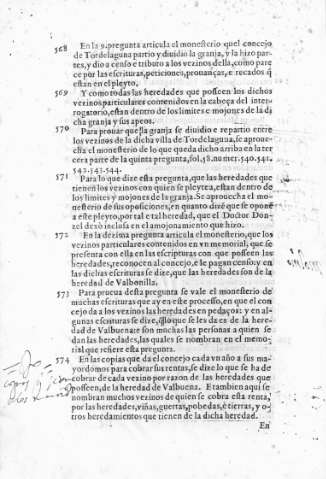 568 En la 9. pregunta articula el monesterio quel concejo
de Tordelaguna partio y diuidio la granja, y la hizo par
tes, y dio a censo e tributo a los vezinos della, como pare
ce por las escrituras, peticiones, prouanças, e recados q̃
estan en el pleyto.
569 Y como todas las heredades que posseen los dichos
vezinos particulares contenidos en la cabeça del inter-
rogatorio, estan dentro de los limites e mojones de la di
cha granja y sus apeos.
570 Para prouar que la granja se diuidio e repartio entre
los vezinos de la dicha villa de Tordelaguna, se aproue-
cha el monesterio de lo que queda dicho arriba en la ter
cera parte de la quinta pregunta, fol. 58. numer. 540. 541.
542. 543. 544.
571 Para lo que dize esta pregunta, que las heredades que
tienen los vezinos con quien se pleytea, estan dentro de
los limites y mojones de la granja. Se aprouecha el mo-
nesterio de sus oposiciones, en quanto dizē que se opone
a este pleyto, por tal e tal heredad, que el Doctor Don-
zel dexò inclusa en el amojonamiento que hizo.
572 En la dezima pregunta articula el monesterio, que los
vezinos particulares contenidos en vn memorial, que se
presenta con ella en las escripturas con que posseen las
heredades, reconocen al concejo, e le pagan censo, y en
las dichas escrituras se dize, que las heredades son de la
heredad de Valbonilla.
573 Para prueua desta pregunta se vale el monesterio de
muchas escrituras que ay en este processo, en que el con
cejo da a los vezinos las heredades en pedaços: y en al-
gunas escrituras se dize, q̃ lo que se les da es de la here-
dad de Valbuena: e son muchas las personas a quien se
dan las heredades, las quales se nombran en el memo-
rial que refiere esta pregunta.
574 En las copias que da el concejo cada vn año a sus ma-
yordomos para cobrar sus rentas, se dize lo que se ha de
cobrar de cada vezino por razon de las heredades que
posseen, de la heredad de Valbuena. E tambien aqui se
nombran muchos vezinos de quien se cobra esta renta,
por las heredades, viñas, guertas, pobedas, e tierras, y o-
tros heredamientos que tienen de la dicha heredad.
En